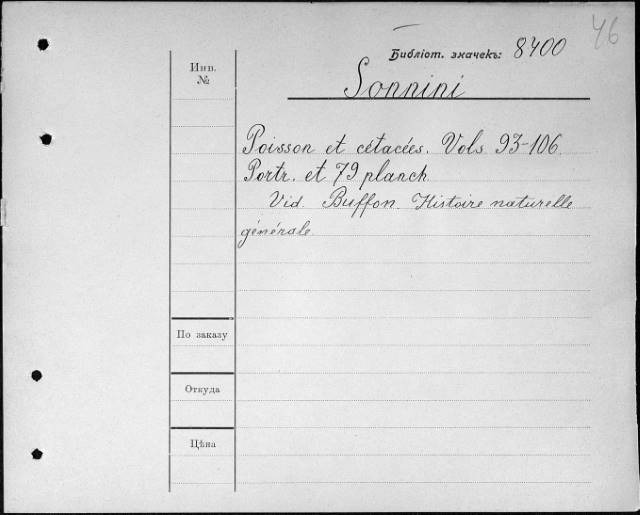 46
Библіот. значекъ: 8400
Sonnini
Инв.
№
Poisson et cétacées. Vols. 93-106.
Portr. et 79 planch.
Vid. Buffon. Histoire naturelle
générale.
По заказу
Откуда
Цѣна